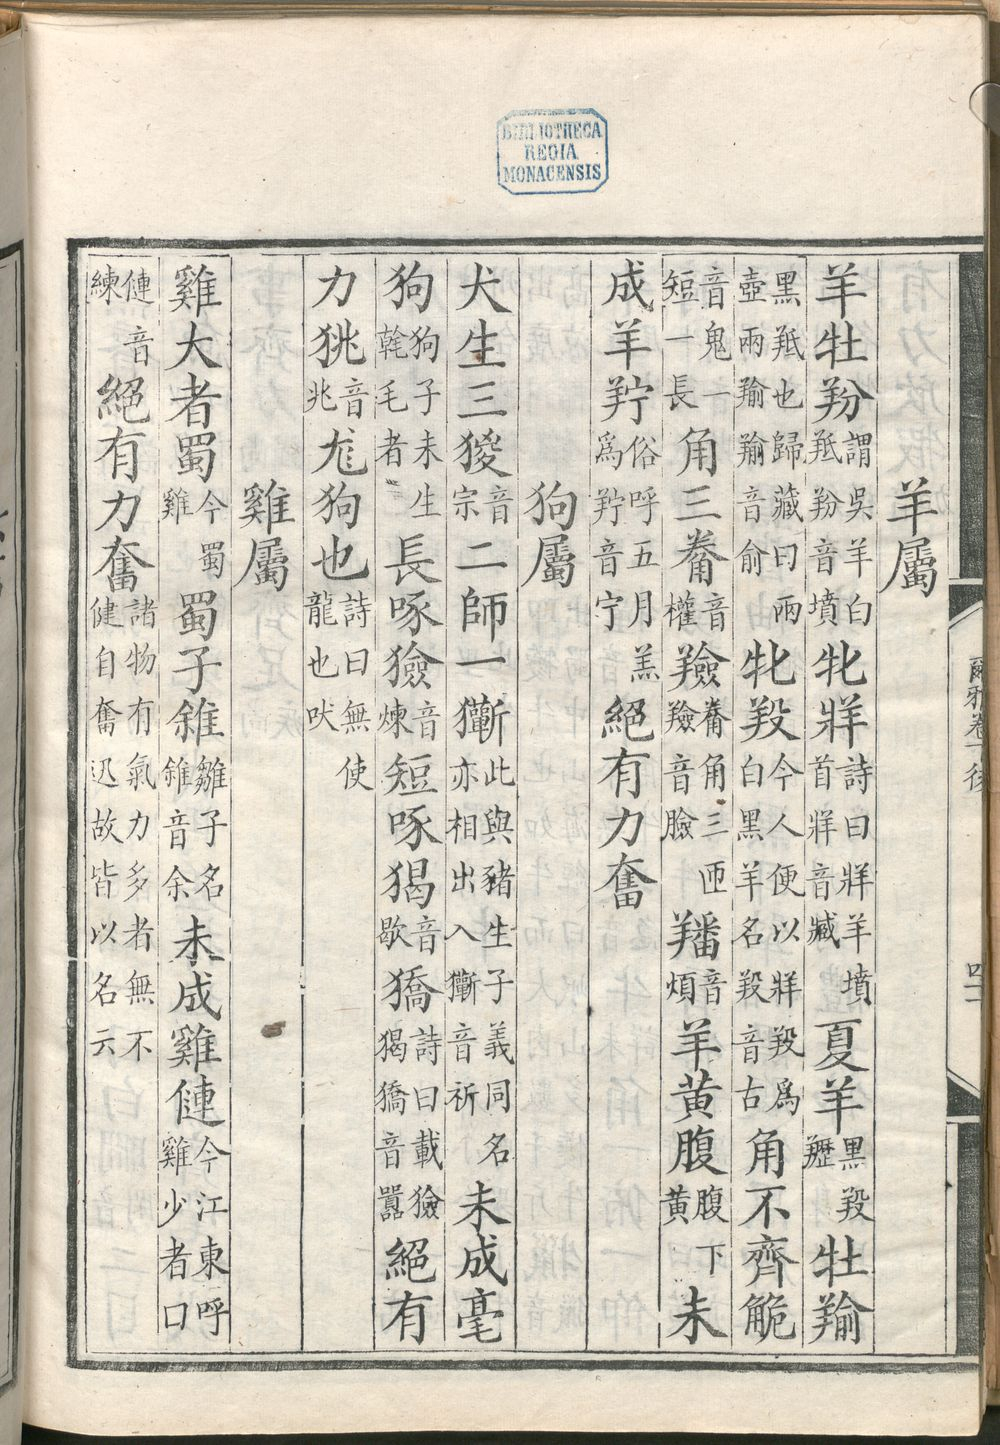 BIBLIOTHECA
REGIA
MONACENSIS
羊屬
羊牡羒謂吳羊白羝羒音墳牝牂詩曰牂羊墳首牂音臧夏羊黑羖䍽牡羭
黑羝也歸藏曰兩壺兩羭羭音俞牝羖今人便以牂羖爲白黑羊名羖音古角不齊觤
音鬼一短一長角三觠音權羷觠角三匝羷音臉羳音煩羊黃腹腹下黃未
成羊羜俗呼五月羔爲羜音宁絕有力奮
狗屬
犬生三猣音宗二師一獑此與豬生子義同名亦相出入獑音祈未成毫
狗狗子未生㲦毛者長喙獫音煉短喙猲音歇獢詩曰載獫猲獢音囂絕有
力狣音兆尨狗也詩曰無使龍也吠
雞屬
雞大者蜀今蜀雞蜀子雓雛子名雓音余未成雞僆今江東呼雞少者曰
僆音練絕有力奮諸物有氣力多者無不健自奮迅故皆以名云
爾雅卷下後